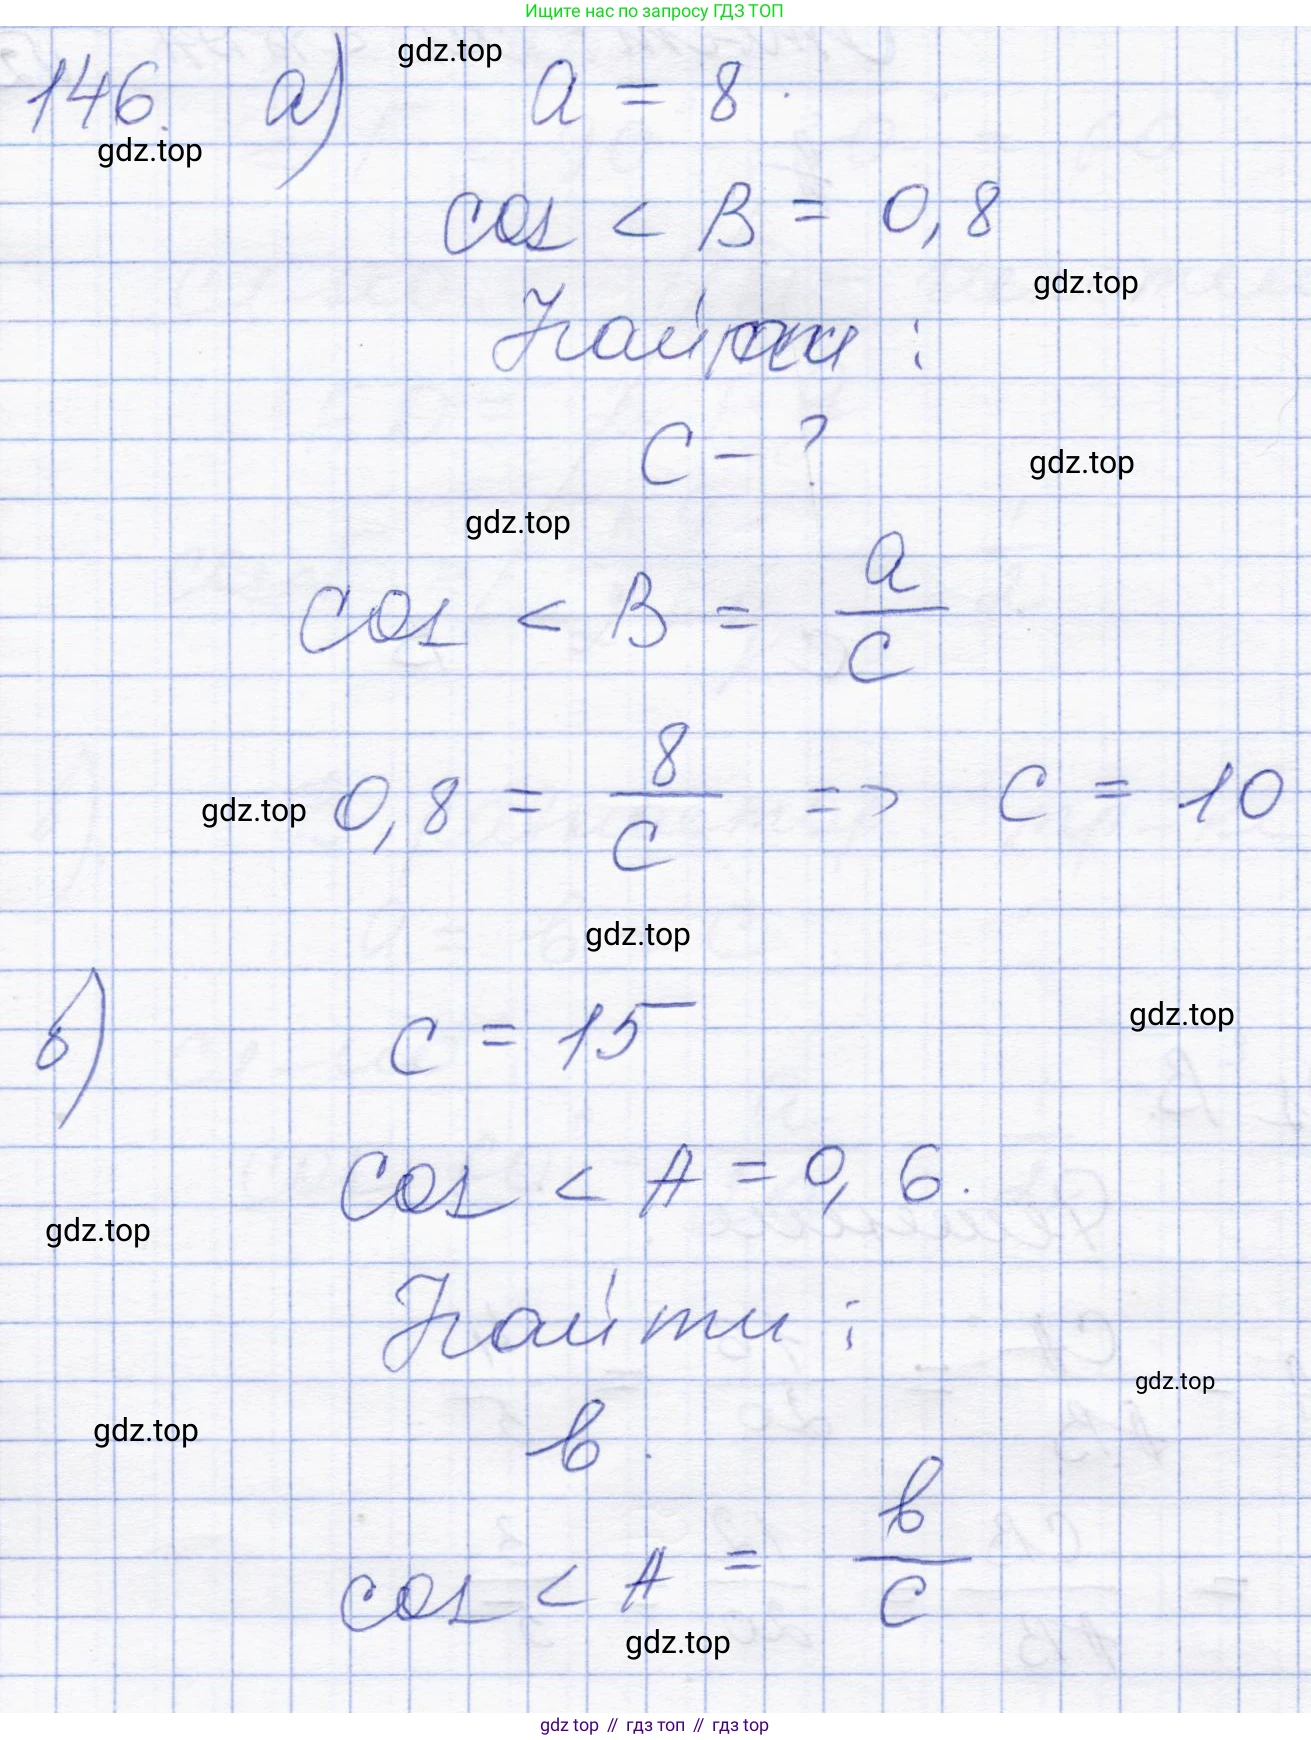 Ищите нас по запросу ГДЗ ТОП
gdz.top
146. а) a = 8.
gdz.top
cos < B = 0,8
gdz.top
Найти :
c - ?
gdz.top
gdz.top
cos < B = a/c
0,8 = 8/c => c = 10
gdz.top
gdz.top
б) c = 15
gdz.top
cos < A = 0,6.
gdz.top
Найти :
gdz.top
b.
gdz.top
cos < A = b/c
gdz.top
gdz top // гдз топ // гдз top